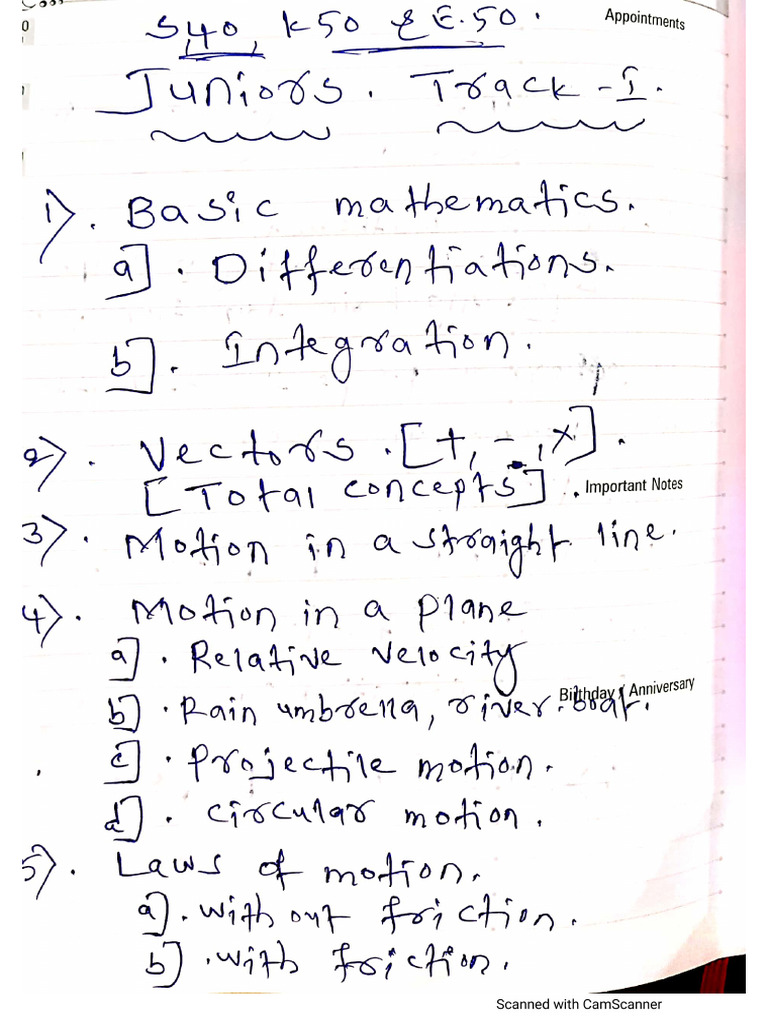 S40, K50 & E.50.
Appointments
Juniors. Track-I.
1). Basic mathematics.
a]. Differentiations.
b]. Integration.
2). Vectors. [+, -, ×].
[Total concepts].
Important Notes
3). Motion in a straight line.
4). Motion in a plane
a]. Relative velocity
Birthday / Anniversary
b]. Rain umbrella, river boat.
c]. Projectile motion.
d]. circular motion.
5). Laws of motion.
a]. with out friction.
b]. with friction.
Scanned with CamScanner